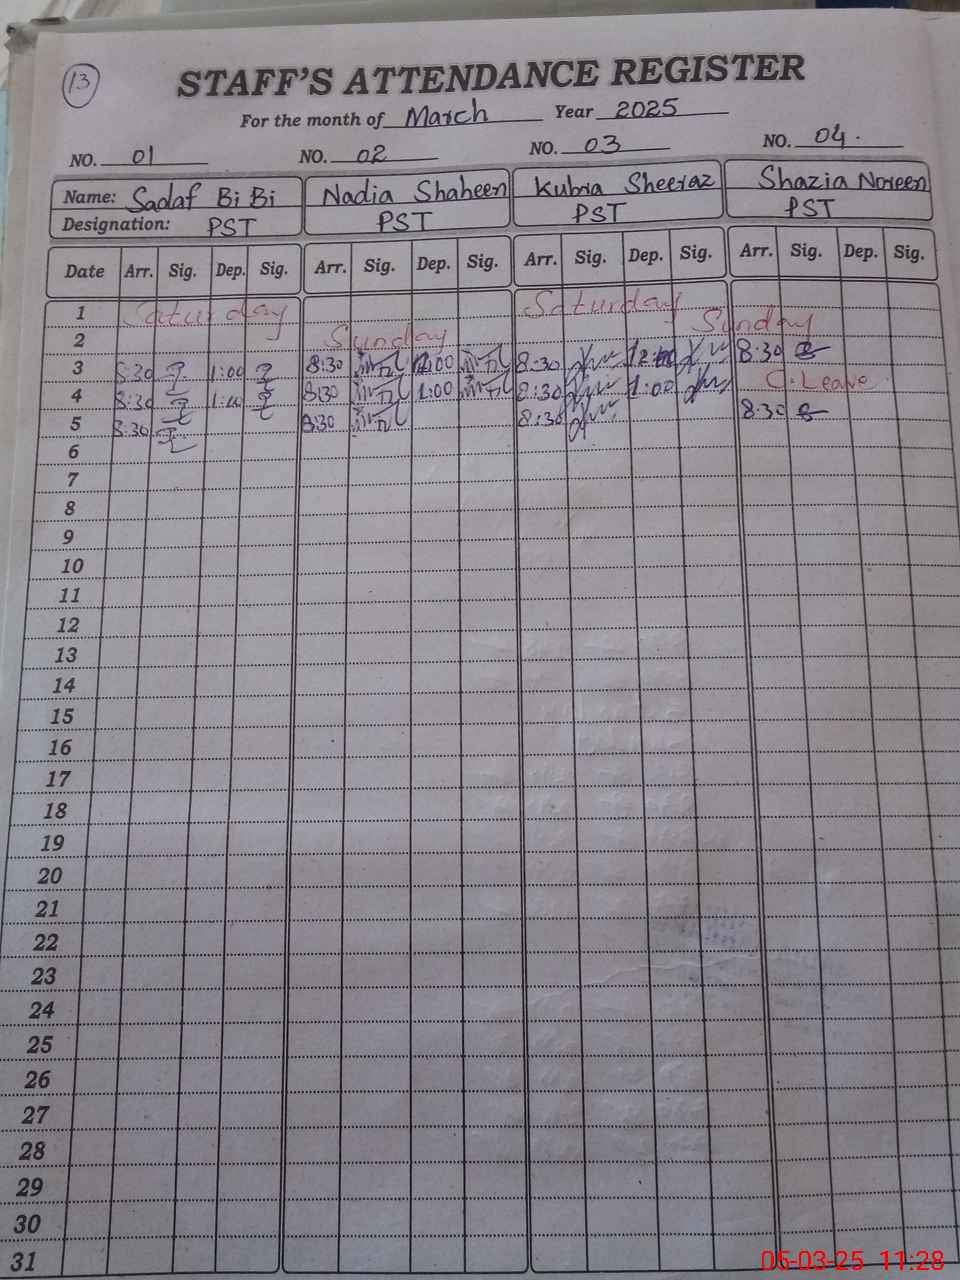 13
STAFF'S ATTENDANCE REGISTER
For the month of March Year 2025
NO. 01 NO. 02 NO. 03 NO. 04.
Name: Sadaf Bi Bi Nadia Shaheen Kubra Sheeraz Shazia Noreen
Designation: PST PST PST PST
Date Arr. Sig. Dep. Sig. Arr. Sig. Dep. Sig. Arr. Sig. Dep. Sig. Arr. Sig. Dep. Sig.
1 Saturday Saturday
2 Sunday Sunday
3 8:30 1:00 8:30 8:30 8:30
4 8:30 1:00 8:30 1:00 8:30 1:00 C. Leave
5 8:30 8:30 8:30 8:30
6
7
8
9
10
11
12
13
14
15
16
17
18
19
20
21
22
23
24
25
26
27
28
29
30
31
05-03-25 11:28